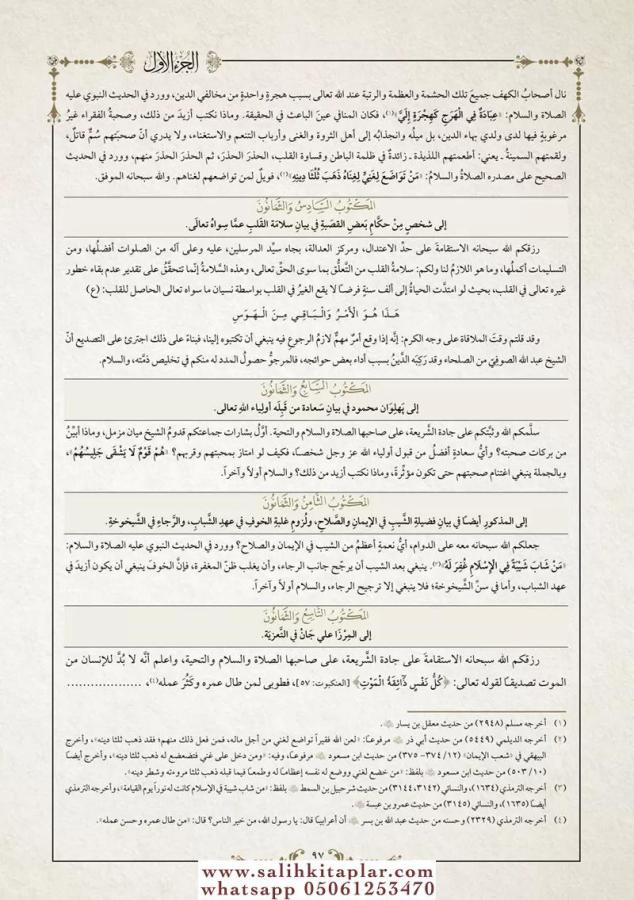 الجزء الأول
نال أصحابُ الكهف جميعَ تلك الحشمة والعظمة والرتبة عند الله تعالى بسبب هجرةٍ واحدةٍ من مخالفي الدين، وورد في الحديث النبوي عليه
الصلاة والسلام: «عِبَادَةٌ فِي الْهَرَجِ كَهِجْرَةٍ إِلَيَّ»(١)، فكان المنافي عينَ الباعث في الحقيقة. وماذا نكتب أزيدَ من ذلك، وصحبةُ الفقراء غيرُ
مرغوبةٍ فيها لدى ولدي بهاء الدين، بل ميلُه وانجذابُه إلى أهل الثروة والغنى وأرباب التنعم والاستغناء، ولا يدري أنّ صحبتهم سُمٌّ قاتلٌ،
ولقمتهم السمينةُ ـ يعني: أطعمتهم اللذيذة ـ زائدةٌ في ظلمة الباطن وقساوة القلب، الحذرَ الحذرَ، ثم الحذرَ الحذرَ منهم، وورد في الحديث
الصحيح على مصدره الصلاةُ والسلامُ: «مَنْ تَوَاضَعَ لِغَنِيٍّ لِغِنَاهُ ذَهَبَ ثُلُثَا دِينِهِ»(٢)، فويلٌ لمن تواضعهم لغناهم. والله سبحانه الموفق.
المكتوبُ السَّادِسُ والثَّمَانُونَ
إلى شخصٍ مِنْ حكَّامِ بَعضِ القصَبةِ في بيانِ سلامَة القَلبِ عمَّا سِواهُ تعالَى.
رزقكم الله سبحانه الاستقامةَ على حدِّ الاعتدال، ومركز العدالة، بجاه سيِّد المرسلين، عليه وعلى آله من الصلوات أفضلُها، ومن
التسليمات أكملُها، وما هو اللازمُ لنا ولكم: سلامةُ القلب من التَّعلُّق بما سوى الحقِّ تعالى، وهذه السَّلامةُ إنَّما تتحقَّقُ على تقدير عدم بقاء خطور
غيره تعالى في القلب، بحيث لو امتدَّت الحياةُ إلى ألف سنةٍ فرضـًا لا يقع الغيرُ في القلب بواسطة نسيان ما سواه تعالى الحاصل للقلب: (ع)
هَـذَا هُـوَ الأَمْـرُ وَالْبَـاقِـي مِـنَ الْـهَـوَسِ
وقد قلتم وقتَ الملاقاة على وجه الكرم: إنَّه إذا وقع أمرٌ مهمٌّ لازمُ الرجوعِ فيه ينبغي أن تكتبوه إلينا، فبناءً على ذلك اجترئ على التصديع أنّ
الشيخ عبد الله الصوفيّ من الصلحاء وقد رَكِبَه الدَّينُ بسبب أداء بعض حوائجه، فالمرجوُّ حصولُ المدد له منكم في تخليص ذمَّته، والسلام.
المكتوبُ السَّابِعُ والثَّمَانُونَ
إلى پَهلِوَان محمود في بيانِ سَعادة من قَبِلَه أولِياء اللهِ تعالى.
سلَّمكم الله وثبَّتكم على جادة الشَّريعة، على صاحبها الصلاة والسلام والتحية. أوَّلُ بشارات جماعتكم قدومُ الشيخ ميان مزمل، وماذا أبيِّنُ
من بركات صحبته؟ وأيُّ سعادةٍ أفضلُ من قبول أولياء الله عز وجل شخصـًا، فكيف لو امتاز بمحبتهم وقربهم؟ «هُمْ قَوْمٌ لَا يَشْقَى جَلِيسُهُمْ»،
وبالجملة ينبغي اغتنام صحبتهم حتى تكون مؤثِّرةً، وماذا نكتب أزيد من ذلك؟ والسلام أولاً وآخراً.
المكتوبُ الثَّامِنُ والثَّمَانُونَ
إلى المذكورِ أيضـًا في بيانِ فضيلةِ الشَّيبِ في الإيمانِ والصَّلاحِ، ولُزومِ غلَبةِ الخوفِ في عهدِ الشَّبابِ، والرَّجاءِ في الشَّيخوخةِ.
جعلكم الله سبحانه معه على الدوام، أيُّ نعمةٍ أعظمُ من الشيب في الإيمان والصلاح؟ وورد في الحديث النبوي عليه الصلاة والسلام:
«مَنْ شَابَ شَيْبَةً فِي الْإِسْلَامِ غُفِرَ لَهُ»(٣). ينبغي بعد الشيب أن يرجِّح جانب الرجاء، وأن يغلب ظنّ المغفرة، فإنَّ الخوفَ ينبغي أن يكون أزيدَ في
عهد الشباب، وأما في سنِّ الشَّيخوخة؛ فلا ينبغي إلا ترجيح الرجاء، والسلام أولاً وآخراً.
المكتوبُ التَّاسِعُ والثَّمَانُونَ
إلى المِرْزَا علي جَانْ في التَّعزيَة.
رزقكم الله سبحانه الاستقامةَ على جادة الشَّريعة، على صاحبها الصلاة والسلام والتحية، واعلم أنَّه لا بُدَّ للإنسان من
الموت تصديقـًا لقوله تعالى: ﴿كُلُّ نَفْسٍ ذَآئِقَةُ الْمَوْتِ﴾ [العنكبوت: ٥٧]، فطوبى لمن طال عمره وكَثُرَ عمله(٤)، ....................
(١) أخرجه مسلم (٢٩٤٨) من حديث معقل بن يسار ﷺ.
(٢) أخرجه الديلمي (٥٤٤٩) من حديث أبي ذر مرفوعـًا: «لعن الله فقيراً تواضع لغني من أجل ماله، فمن فعل ذلك منهم؛ فقد ذهب ثلثا دينه»، وأخرج
البيهقي في «شعب الإيمان» (١٢/ ٣٧٤- ٣٧٥) من حديث ابن مسعود مرفوعـًا، وفيه: «ومن دخل على غني فتضعضع له ذهب ثلثا دينه»، وأخرج أيضـًا
(١٠/ ٥٠٣) من حديث ابن مسعود بلفظ: «من خضع لغني ووضع له نفسه إعظامـًا له وطمعـًا فيما قبله ذهب ثلثا مروءته وشطر دينه».
(٣) أخرجه الترمذي (١٦٣٤)، والنسائي (٣١٤٢، ٣١٤٤) من حديث شرحبيل بن السمط بلفظ: «من شاب شيبة في الإسلام كانت له نوراً يوم القيامة»، وأخرجه الترمذي
أيضـًا (١٦٣٥)، والنسائي (٣١٤٥) من حديث عمرو بن عبسة.
(٤) أخرجه الترمذي (٢٣٢٩) وحسنه من حديث عبد الله بن بسر أن أعرابيـًا قال: يا رسول الله، من خير الناس؟ قال: «من طال عمره وحسن عمله».
٩٧
www.salihkitaplar.com
whatsapp 05061253470